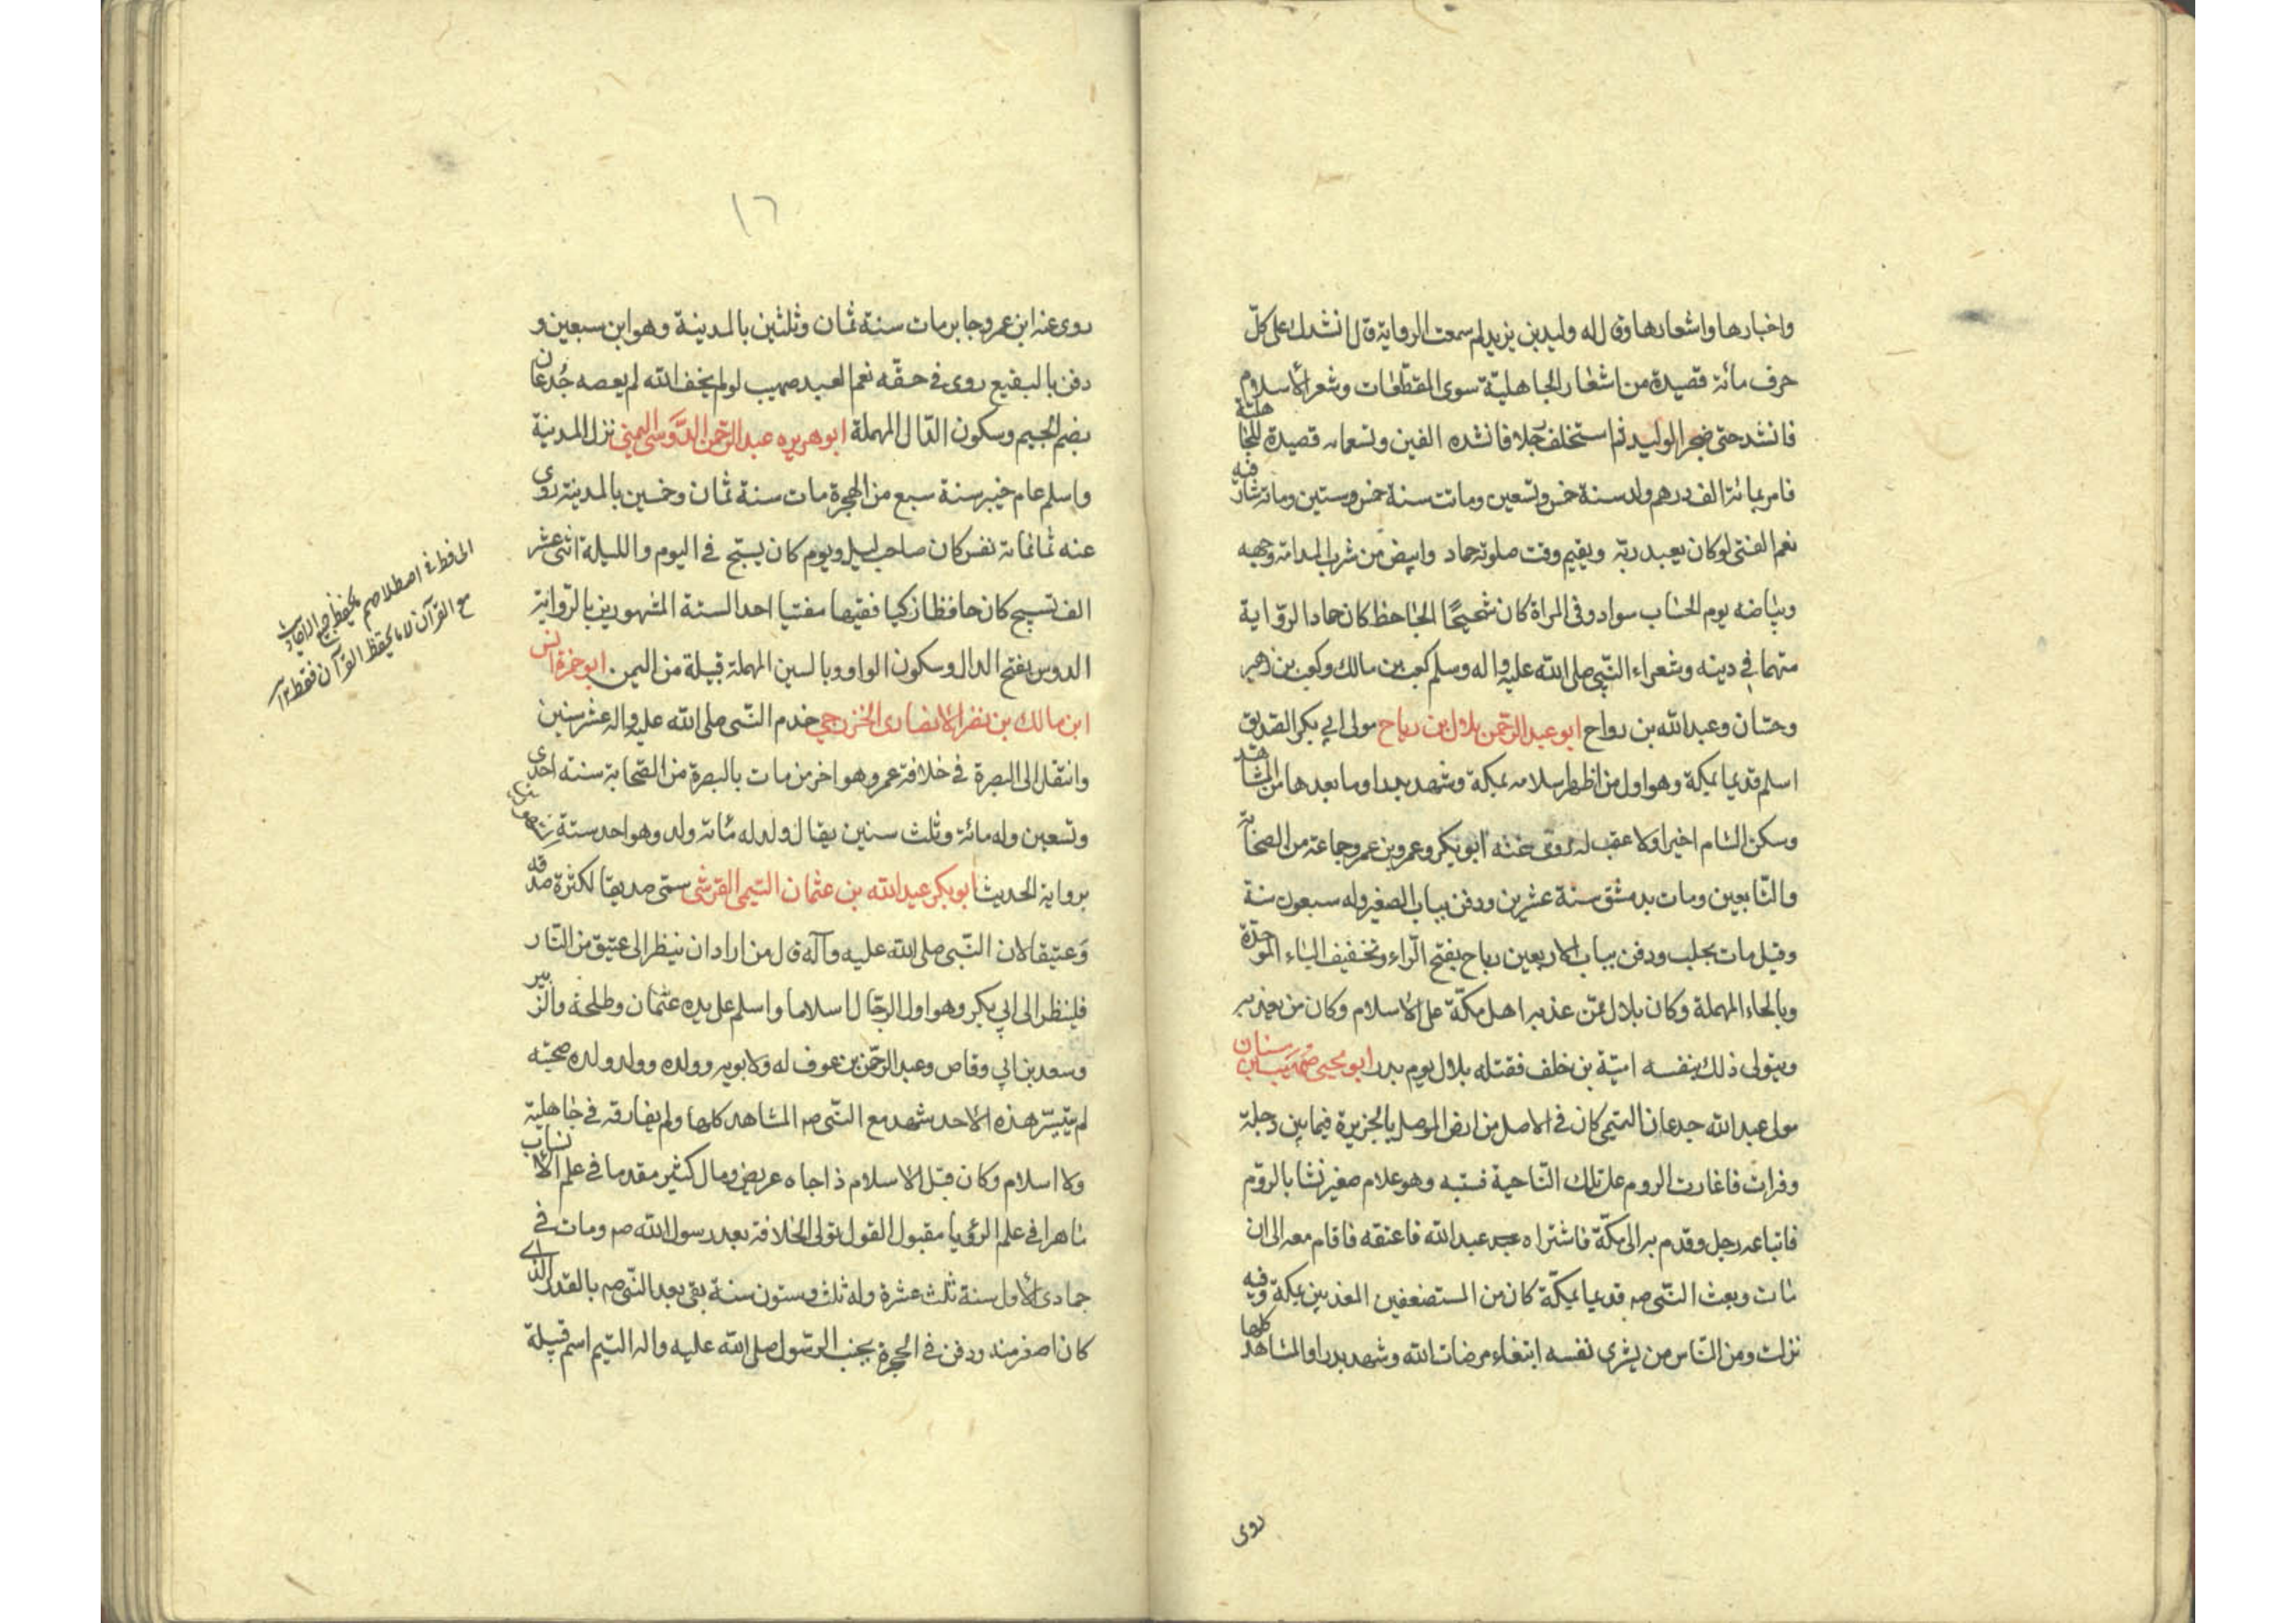 واخبارها واشعارها وقال له وليد بن يزيد لم سمعت الرواية قال انشدك على كلّ
حرف مائة قصيدة من اشعار الجاهليّة سوى المقطّعات وشعر الاسلام
فانشد حتى ضجر الوليد ثم استخلف رجلا فانشده الفين وتسعمائه قصيدة للجاهلية
فامر بمائة الف درهم ولد سنة خمس وتسعين وماتت سنة خمس وستين ومائة
نعم الفتى لو كان يعبد ربّه ويقيم وقت صلوته حماد وابيض من شرب المدامة وجهه
وبياضه يوم الحساب سواد وفى المراة كان شحيحًا الجاحظ كان حماد الرواية
متهما في دينه وشعراء النّبي صلى الله عليه واله وسلم كعب بن مالك وكعب بن زهير
وحسّان وعبد الله بن رواح ابو عبد الرحمن بلال بن رباح مولى ابي بكر الصّديق
اسلم قديما بمكة وهو اول من اظهر اسلامه بمكة وشهد بدرا وما بعدها من المشاهد
وسكن الشام اخيرا ولا عقب له روى عنه ابو بكر وعمر وبن عمر وجماعة من الصحابة
والتّابعين ومات بدمشق سنة عشرين ودفن بباب الصغير وله سبعون سنة
وقيل مات بحلب ودفن بباب الاربعين رباح بفتح الرّاء وتخفيف الباء الموحدة
وبالحاء المهملة وكان بلال ممّن عذبه اهل مكّة على الاسلام وكان من يعذبه
ويتولى ذلك بنفسه اميّة بن خلف فقتله بلال يوم بدر ابو يحيى صهيب بن سنان
مولى عبد الله جدعان التيمي كان في الاصل من ارض الموصل بالجزيرة فيما بين دجلة
وفرات فاغارت الروم على تلك النّاحية فسبه وهو غلام صغير نشا بالروم
فابتاعه رجل وقدم به الى مكّة فاشتراه عبد الله فاعتقه فاقام معه الى ان
مات وبعث النّبي صم قديما بمكّة كان من المستضعفين المعذبين بمكة وفيه
نزلت ومن النّاس من يشرى نفسه ابتغاء مرضات الله وشهد بدرا والمشاهد كلها
روى
١٦
روى عنه ابن عمر وجابر مات سنة ثمان وثلثين بالمدينة وهو ابن سبعين و
دفن بالبقيع روى في حقّه نعم العبد صهيب لو لم يخف الله لم يعصه جُدعان
بضم الجيم وسكون الدّال المهملة ابو هريره عبد الرحمن الدَّوسى اليمني نزل المدينة
واسلم عام خيبر سنة سبع من الهجرة مات سنة ثمان وخمسين بالمدينة روى
عنه ثمانمائة نفس كان صاحب ليل ويوم كان يسبّح في اليوم والليلة اثنى عشر
الف تسبيح كان حافظا زكيا فقيها مفتيا احد الستة المشهورين بالرّواية
الدوس بفتح الدال وسكون الواو وبالسين المهملة قبيلة من اليمن ابو حمزة انس
ابن مالك بن نضر الانصارى الخزرجي خدم النّبي صلى الله عليه واله عشر سنين
وانتقل الى البصرة في خلافة عمر وهو اخر من مات بالبصرة من الصّحابة سنة احدى
وتسعين وله مائة وثلث سنين يقال ولد له مأئة ولد وهو احد ستة
برواية الحديث ابو بكر عبد الله بن عثمان التيمي القرشى سمّى صديقا لكثرة صدقه
وعتيقا لان النّبي صلى الله عليه وآله قال من اراد ان ينظر الى عتيق من النّار
فلينظر الى ابي بكر وهو اول الرجال اسلاما واسلم على يده عثمان وطلحة والزبير
وسعد بن ابي وقاص وعبد الرحمن بن عوف له ولابويه وولده وولد ولده صحبة
لم يتيسّر هذه لاحد شهد مع النّبي صم المشاهد كلها ولم يفارقه في جاهلية
ولا اسلام وكان قبل الاسلام ذا جاه عريض ومال كثير مقدما في علم الانساب
ماهرا في علم الرؤيا مقبول القول تولى الخلافة بعد رسول الله صم ومات في
جمادى الاول سنة ثلث عشرة وله ثلث وستون سنة بقى بعد النّبي صم بالقدر الذي
كان اصغر منه ودفن في الحجرة بجنب الرسول صلى الله عليه واله التيم اسم قبيلة
الحافظ في اصطلاحهم يحفظ الاحاديث
مع القرآن لا ما يحفظ القرآن فقط ١٢